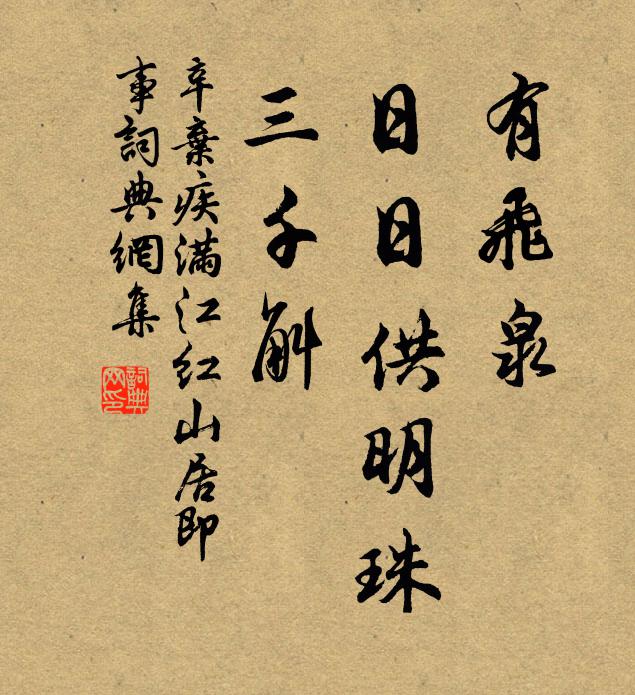 有飛泉
日日供明珠
三千斛
辛棄疾滿江紅山居即
事詞典網集
詞典
网印